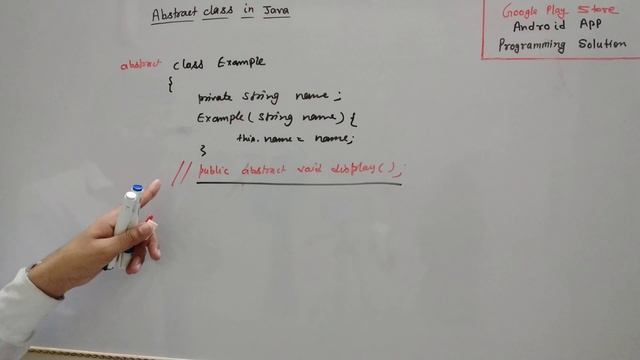 Abstract class in Java
Google Play Store
Android App
Programming Solution
abstract class Example
{
private String name;
Example(String name) {
this.name = name;
}
// public abstract void display();